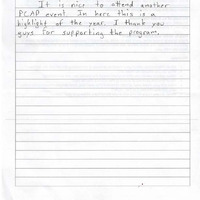 It is nice to attend another
PCAP event. In here this is a
highlight of the year. I thank you
guys for supporting the program.